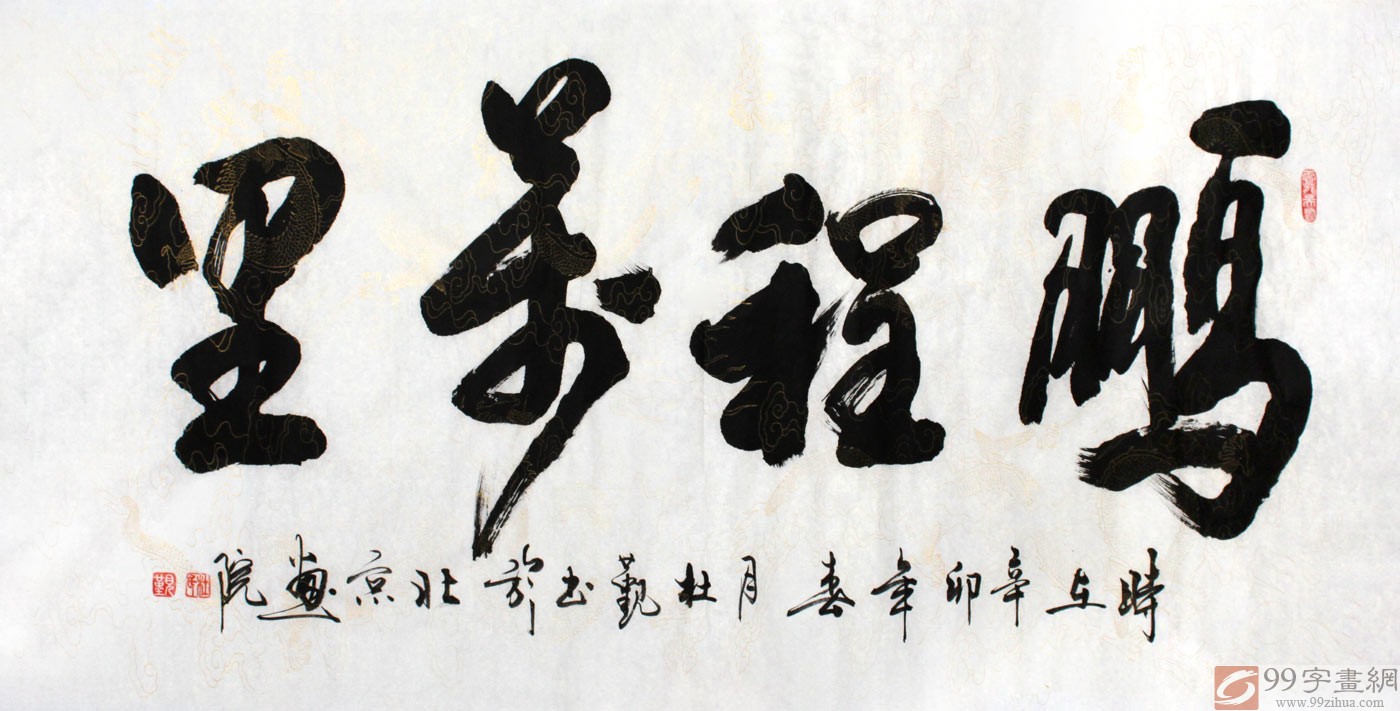 鹏程萬里
時在辛卯年春月杜觐书於北京畫院
99字畫網
www.99zihua.com